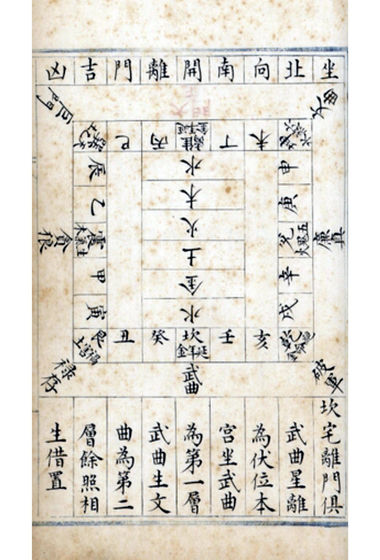 坐北向南開離門吉凶
文曲
巨門
未
丁
丙
巳
申
庚
兌
辛
戌
辰
乙
震
甲
寅
水
木
火
土
金
水
廉貞
貪狼
亥
壬
坎
癸
丑
艮
乾
破軍
武曲
祿存
坎宅離門俱
武曲星離
為伏位本
宮坐武曲
為第一層
武曲生文
曲為第二
層餘照相
生借置